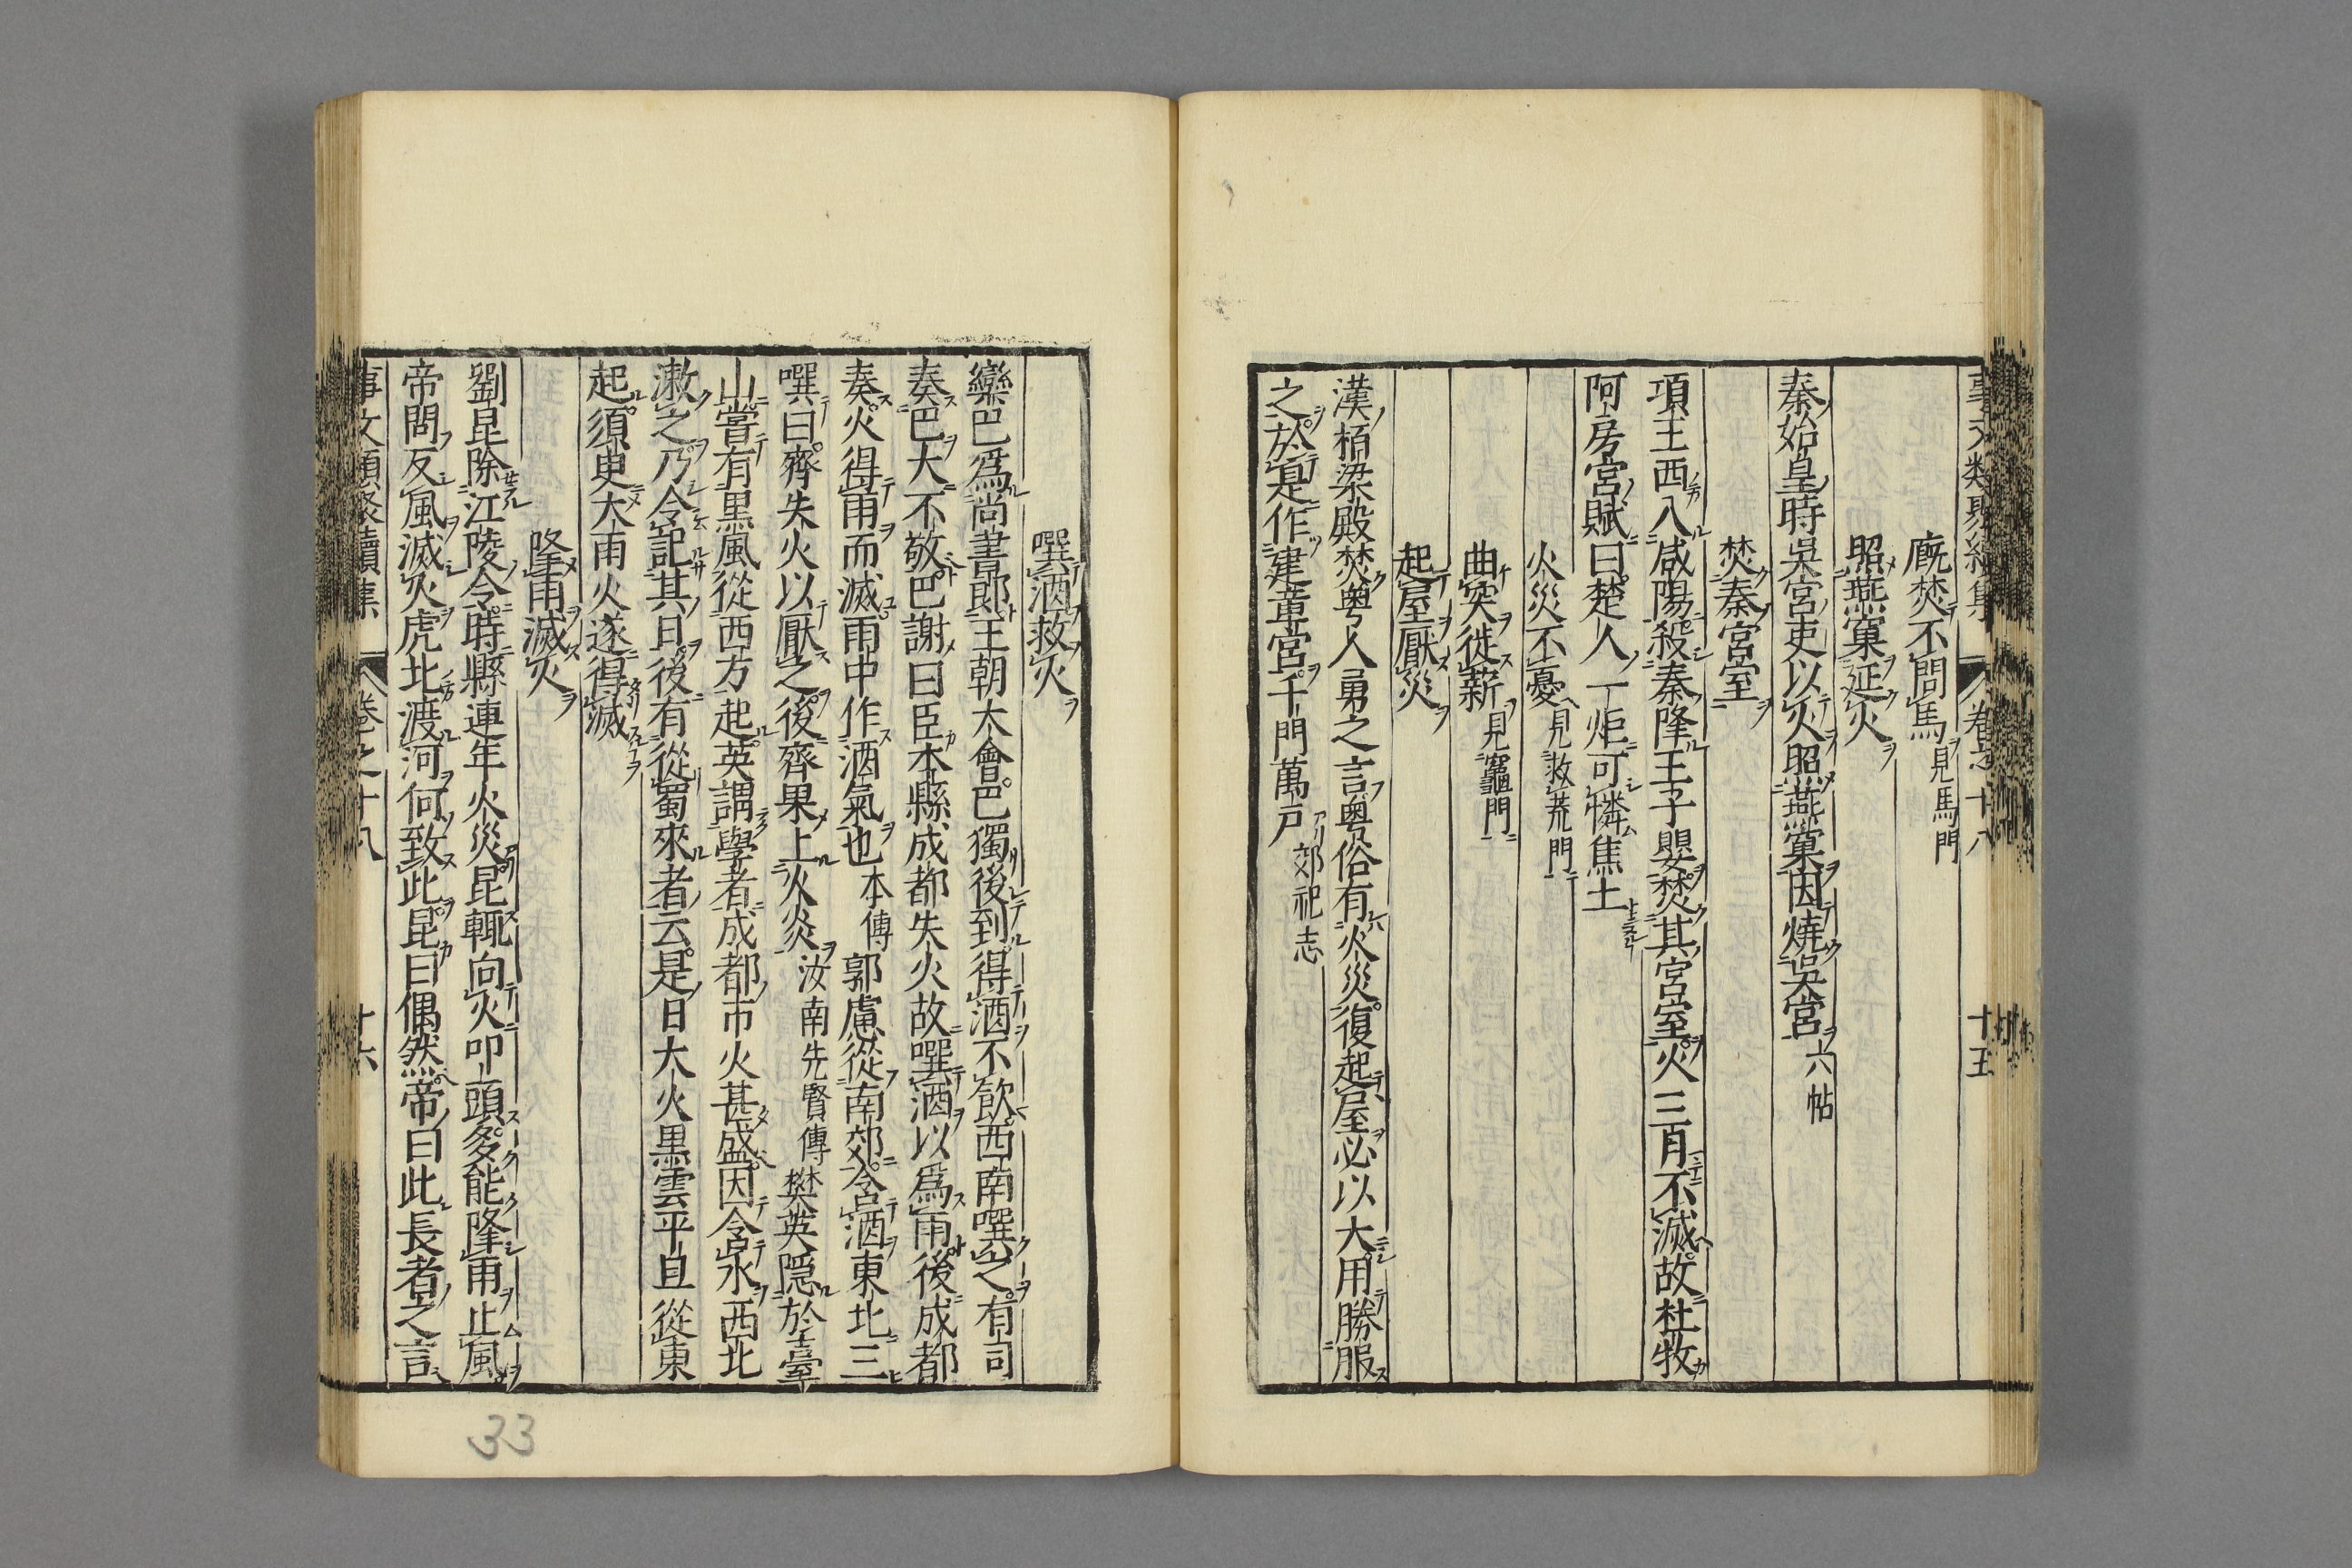 事文類聚續集 卷之十八 十五
廐焚不問馬 見馬門
照燕窠延火
秦始皇時吳宮吏以火照燕窠因燒吳宮 六帖
焚秦宮室
項王西入咸陽殺秦降王子嬰焚其宮室火三月不滅故杜牧
阿房宮賦曰楚人一炬可憐焦土
火災不憂 見救荒門
曲突徙薪 見竈門
起屋厭災
漢栢梁殿焚粤人勇之言粤俗有火災復起屋必以大用勝服
之於是作建章宮千門萬戸 郊祀志
噀酒救火
欒巴爲尚書郎正朝大會巴獨後到得酒不飲西南噀之有司
奏巴大不敬巴謝曰臣本縣成都失火故噀酒以爲雨後成都
奏火得雨而滅雨中作酒氣也 本傳 郭憲從南郊含酒東北三
噀曰齊失火以厭之後齊果上火災 汝南先賢傳 樊英隱於壷
山嘗有黒風從西方起英謂學者成都市火甚盛因含水西北
漱之乃令記其日後有從蜀來者云是日大火黒雲平旦從東
起須臾大雨火遂得滅
降雨滅火
劉昆除江陵令時縣連年火災昆輒向火叩頭多能降雨止風
帝問反風滅火虎北渡河何致此昆曰偶然帝曰此長者之言
事文類聚續集 卷之十八 十六
33